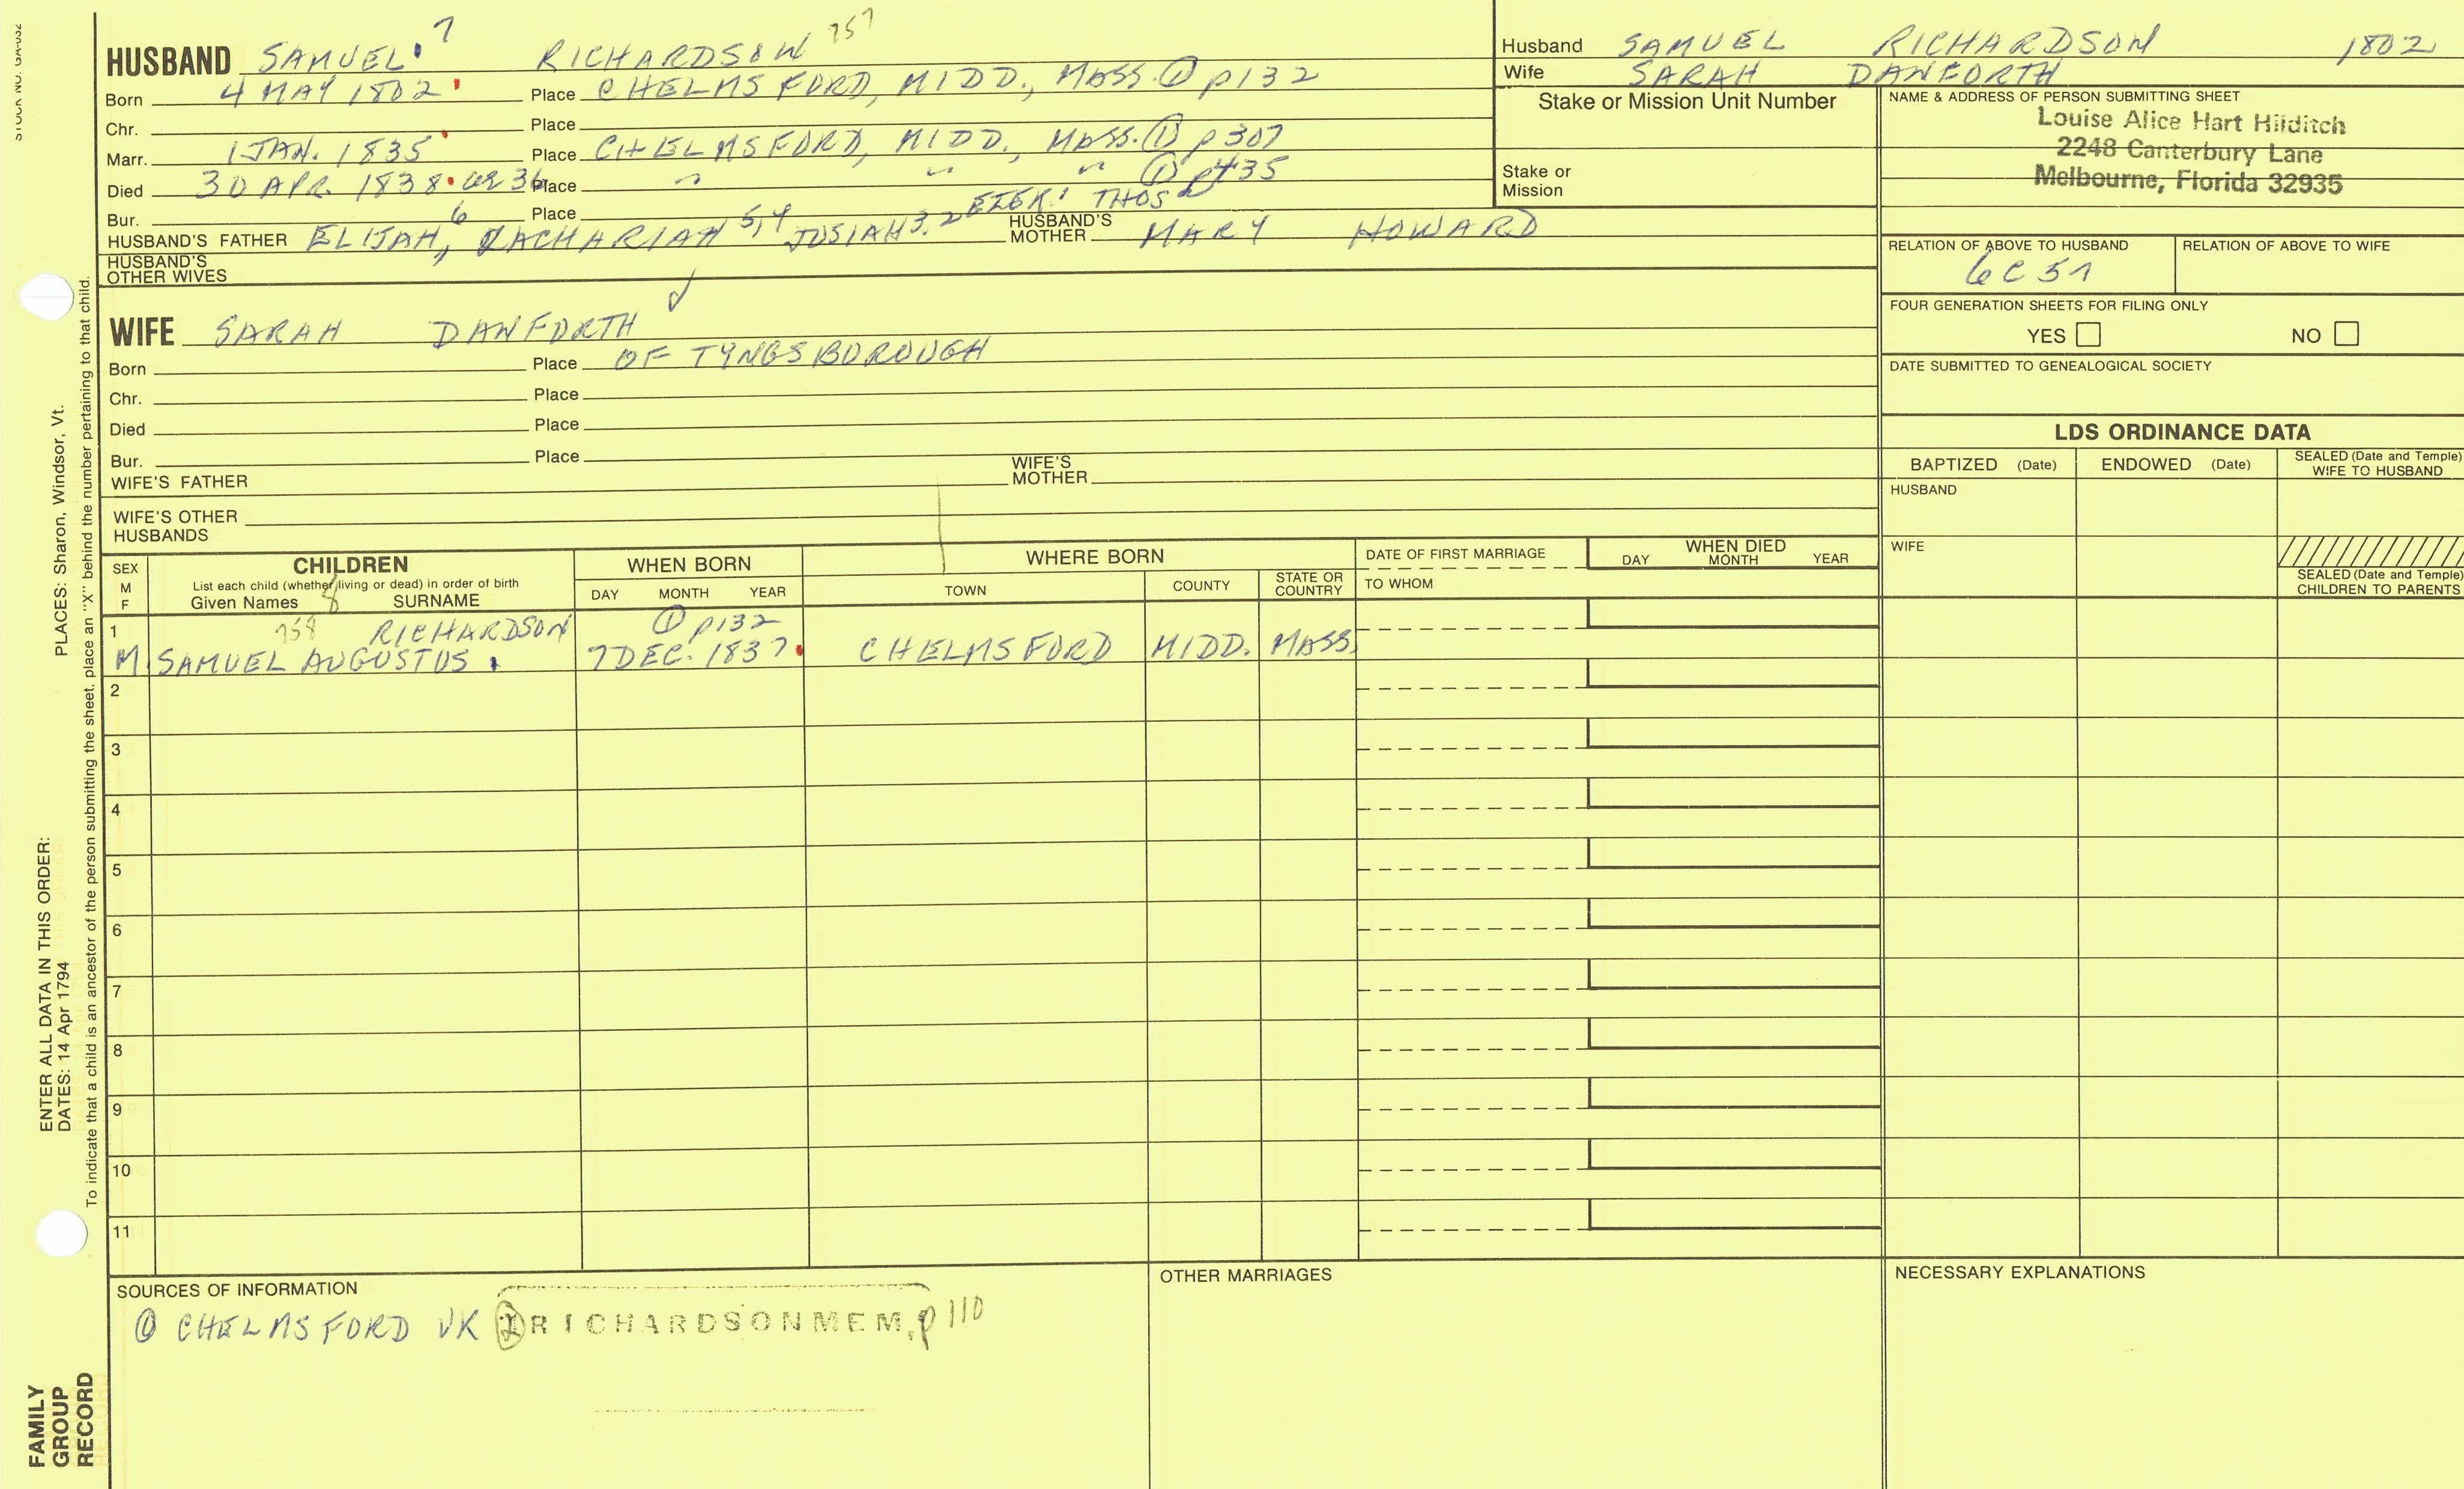 HUSBAND SAMUEL 7 RICHARDSON 757
Born 4 MAY 1802 Place CHELMSFORD, MIDD., MASS. ① p132
Chr. Place
Marr. 1 JAN. 1835 Place CHELMSFORD, MIDD., MASS. ① p307
Died 30 APR. 1838 ae 36 Place " " " ① p435
Bur. Place
HUSBAND'S FATHER ELIJAH, 6 ZACHARIAH 5,4 JOSIAH 3,2 EZEK. 1 THOS HUSBAND'S MOTHER MARY HOWARD
HUSBAND'S OTHER WIVES
WIFE SARAH DANFORTH
Born Place OF TYNGSBOROUGH
Chr. Place
Died Place
Bur. Place
WIFE'S FATHER WIFE'S MOTHER
WIFE'S OTHER HUSBANDS
Husband SAMUEL RICHARDSON 1802
Wife SARAH DANFORTH
Stake or Mission Unit Number
Stake or Mission
NAME & ADDRESS OF PERSON SUBMITTING SHEET
Louise Alice Hart Hilditch
2248 Canterbury Lane
Melbourne, Florida 32935
RELATION OF ABOVE TO HUSBAND RELATION OF ABOVE TO WIFE
6C51
FOUR GENERATION SHEETS FOR FILING ONLY
YES NO
DATE SUBMITTED TO GENEALOGICAL SOCIETY
LDS ORDINANCE DATA
BAPTIZED (Date) ENDOWED (Date) SEALED (Date and Temple) WIFE TO HUSBAND
HUSBAND
WIFE
SEALED (Date and Temple) CHILDREN TO PARENTS
SEX M F
CHILDREN
List each child (whether living or dead) in order of birth
Given Names 8 SURNAME
WHEN BORN
DAY MONTH YEAR
WHERE BORN
TOWN COUNTY STATE OR COUNTRY
DATE OF FIRST MARRIAGE
TO WHOM
WHEN DIED
DAY MONTH YEAR
1 758 RICHARDSON ① p132
M SAMUEL AUGUSTUS 7 DEC. 1837 CHELMSFORD MIDD. MASS.
2
3
4
5
6
7
8
9
10
11
SOURCES OF INFORMATION
① CHELMSFORD VR ② RICHARDSON MEM, p110
OTHER MARRIAGES
NECESSARY EXPLANATIONS
STOCK NO. GA-032
PLACES: Sharon, Windsor, Vt.
ENTER ALL DATA IN THIS ORDER:
DATES: 14 Apr 1794
To indicate that a child is an ancestor of the person submitting the sheet, place an "X" behind the number pertaining to that child.
FAMILY
GROUP
RECORD